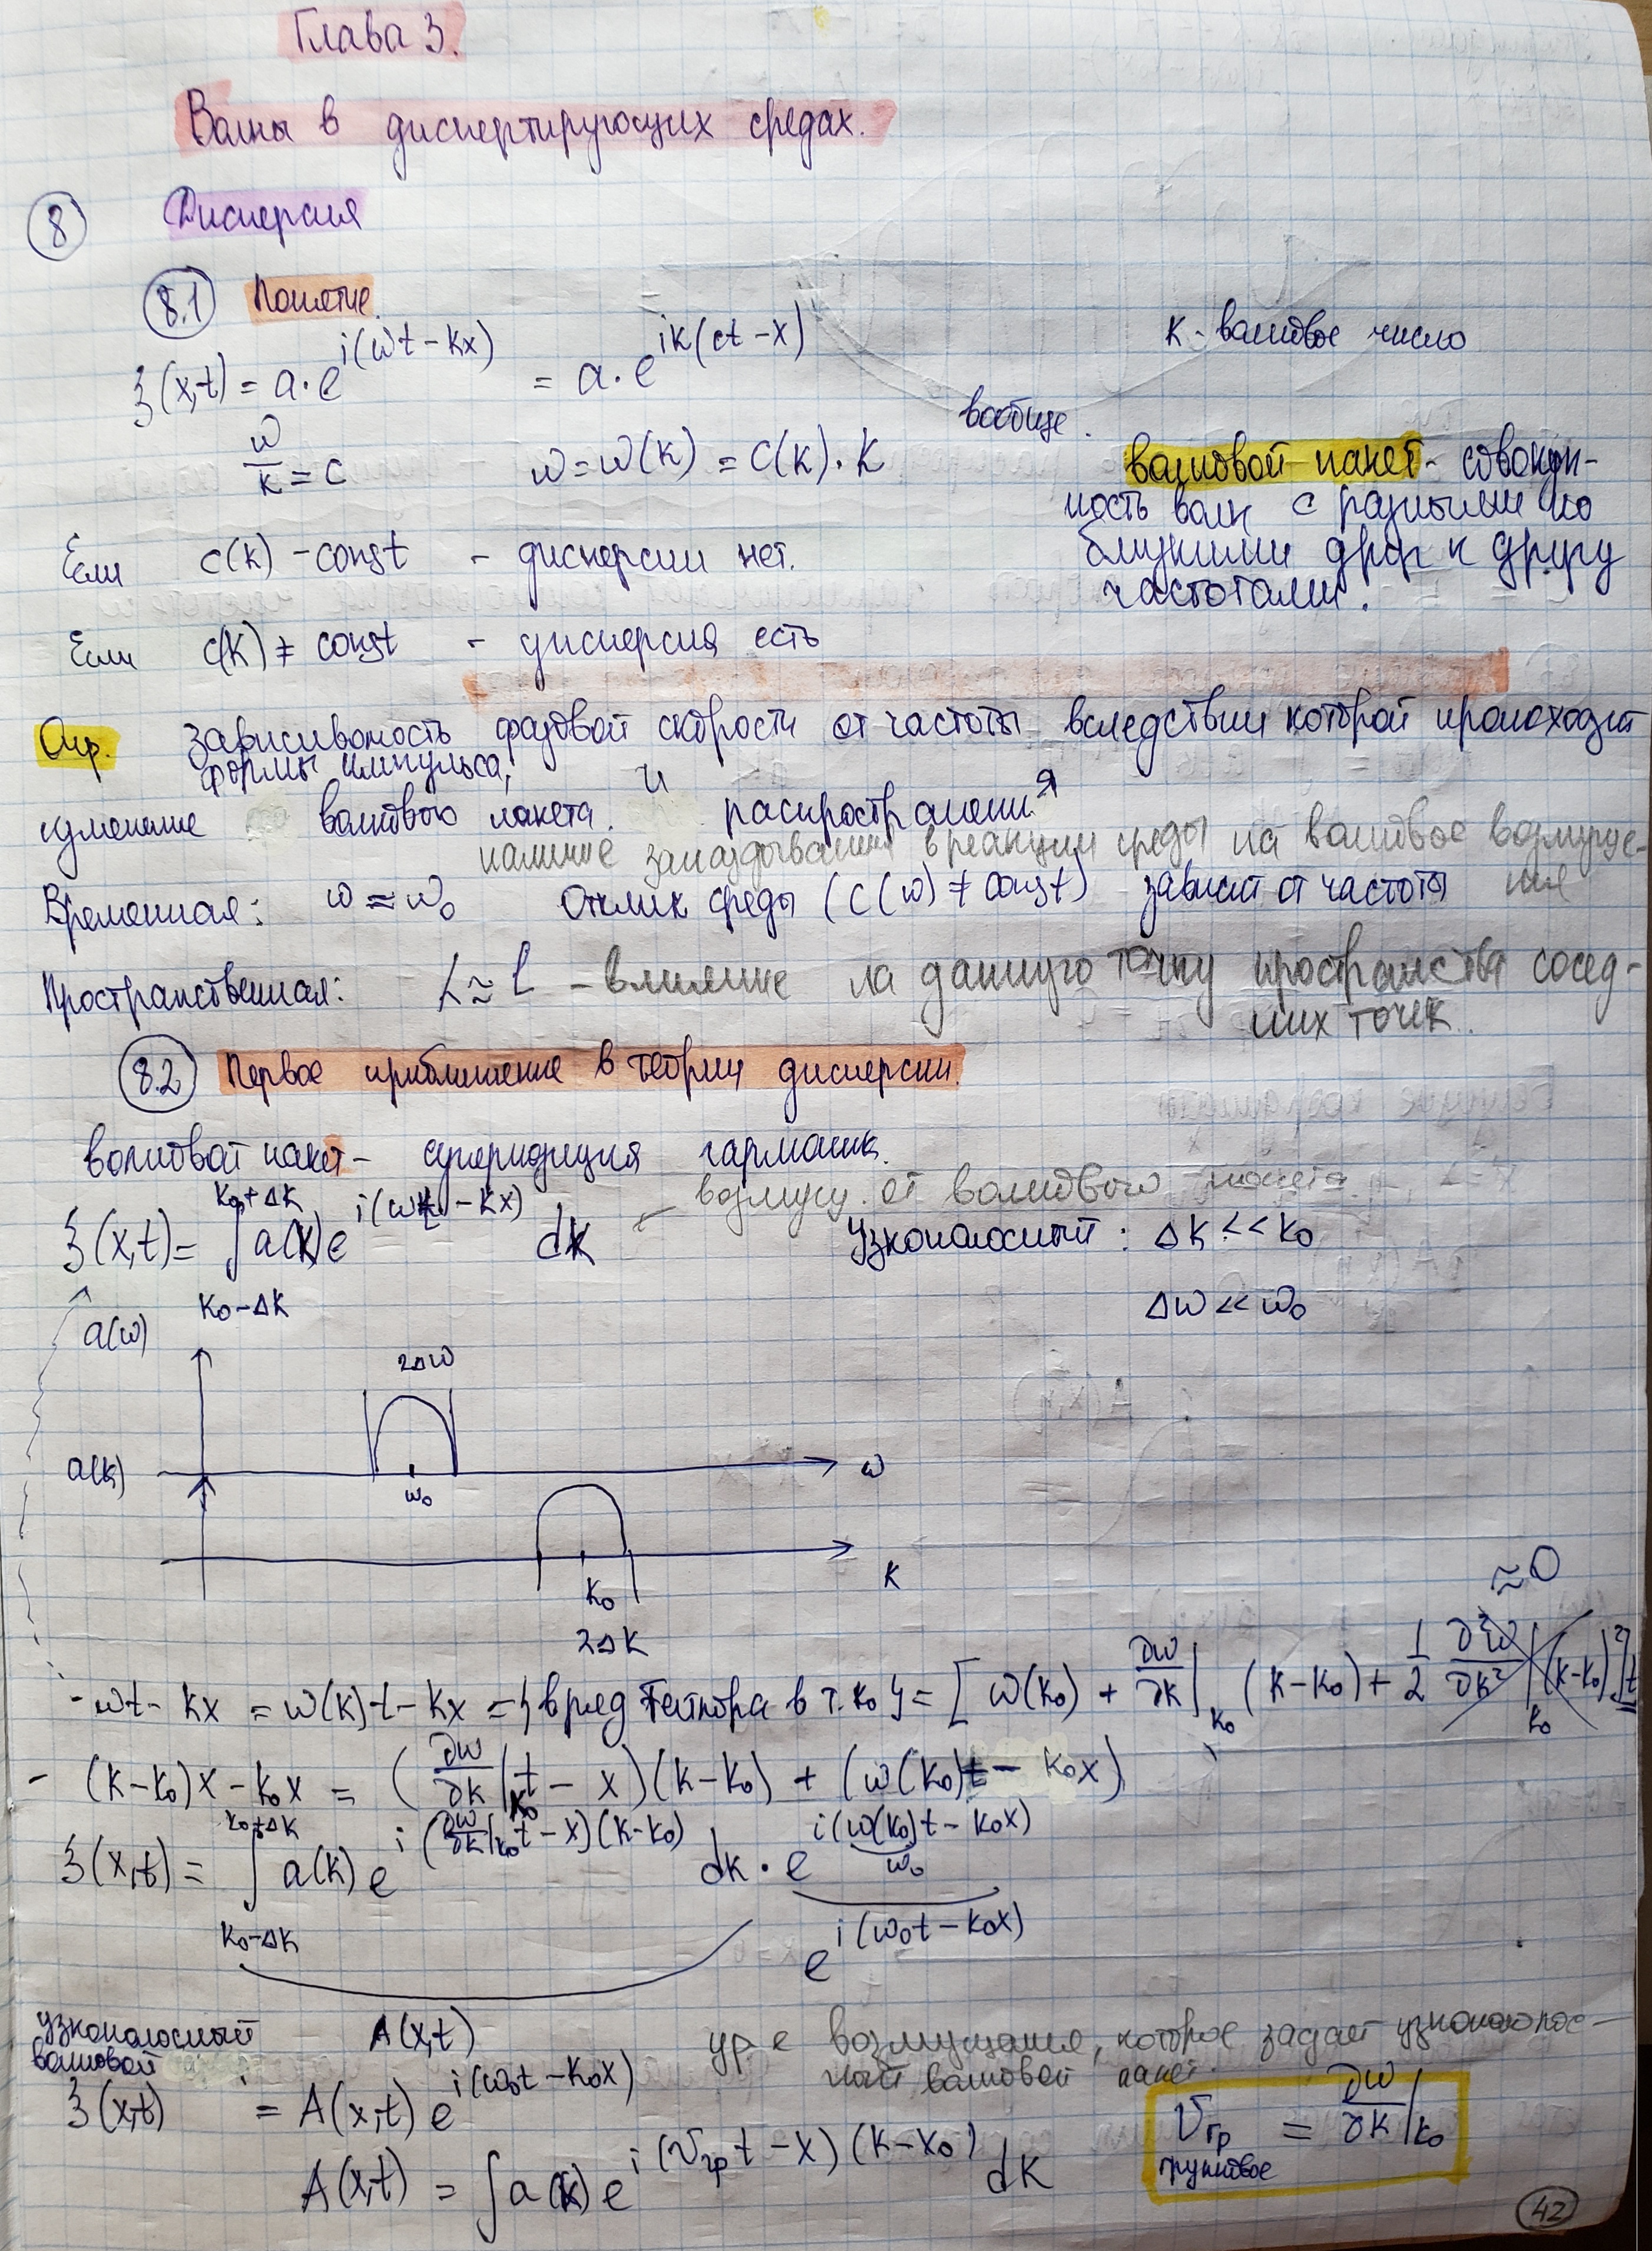 Глава 3.
Волны в диспергирующих средах.
8 Дисперсия
8.1 Понятие.
ξ(x,t) = a·e^{i(ωt-kx)} = a·e^{ik(ct-x)}
k - волновое число
ω/k = c
ω = ω(k) = c(k)·k
вообще.
волновой пакет - совокуп-
ность волн с разными но
близкими друг к другу
частотами.
Если c(k) - const - дисперсии нет.
Если c(k) ≠ const - дисперсия есть
Опр. зависивомость фазовой скорости от частоты вследствии которой происходит
формы импульса,
изменение волнового пакета. и распространения
наличие запаздывания в реакции среды на волновое возмуще-
Временная: ω ≈ ω₀ Отклик среды (c(ω) ≠ const) зависит от частоты ния
Пространственная: L ≈ l - влияние на данную точку пространства сосед-
них точек.
8.2 Первое приближение в теории дисперсии.
волновой пакет - суперпозиция гармоник.
ξ(x,t) = ∫_{k₀-Δk}^{k₀+Δk} a(k)e^{i(ωt-kx)} dk ← возмущ. от волнового пакета
Узкополосный: Δk << k₀
Δω << ω₀
a(ω)
2Δω
ω₀
ω
a(k)
k₀
k
2Δk
≈0
-ωt - kx = ω(k)t - kx = { в ряд Тейлора в т. k₀ } = [ω(k₀) + ∂ω/∂k|_{k₀} (k-k₀) + 1/2 ∂²ω/∂k²|_{k₀} (k-k₀)²]t
- (k-k₀)x - k₀x = (∂ω/∂k|_{k₀} t - x)(k-k₀) + (ω(k₀)t - k₀x)
ξ(x,t) = ∫_{k₀-Δk}^{k₀+Δk} a(k)e^{i(∂ω/∂k|_{k₀} t - x)(k-k₀)} dk · e^{i(ω(k₀)t - k₀x)}
ω₀
e^{i(ω₀t - k₀x)}
A(x,t)
узкополосный
волновой
ур-е возмущения, которое задаёт узкополос-
ный волновой пакет.
ξ(x,t) = A(x,t) e^{i(ω₀t - k₀x)}
A(x,t) = ∫a(k)e^{i(v_{гр}t - x)(k-x₀)} dk
v_{гр} = ∂ω/∂k|_{k₀}
групповое
42